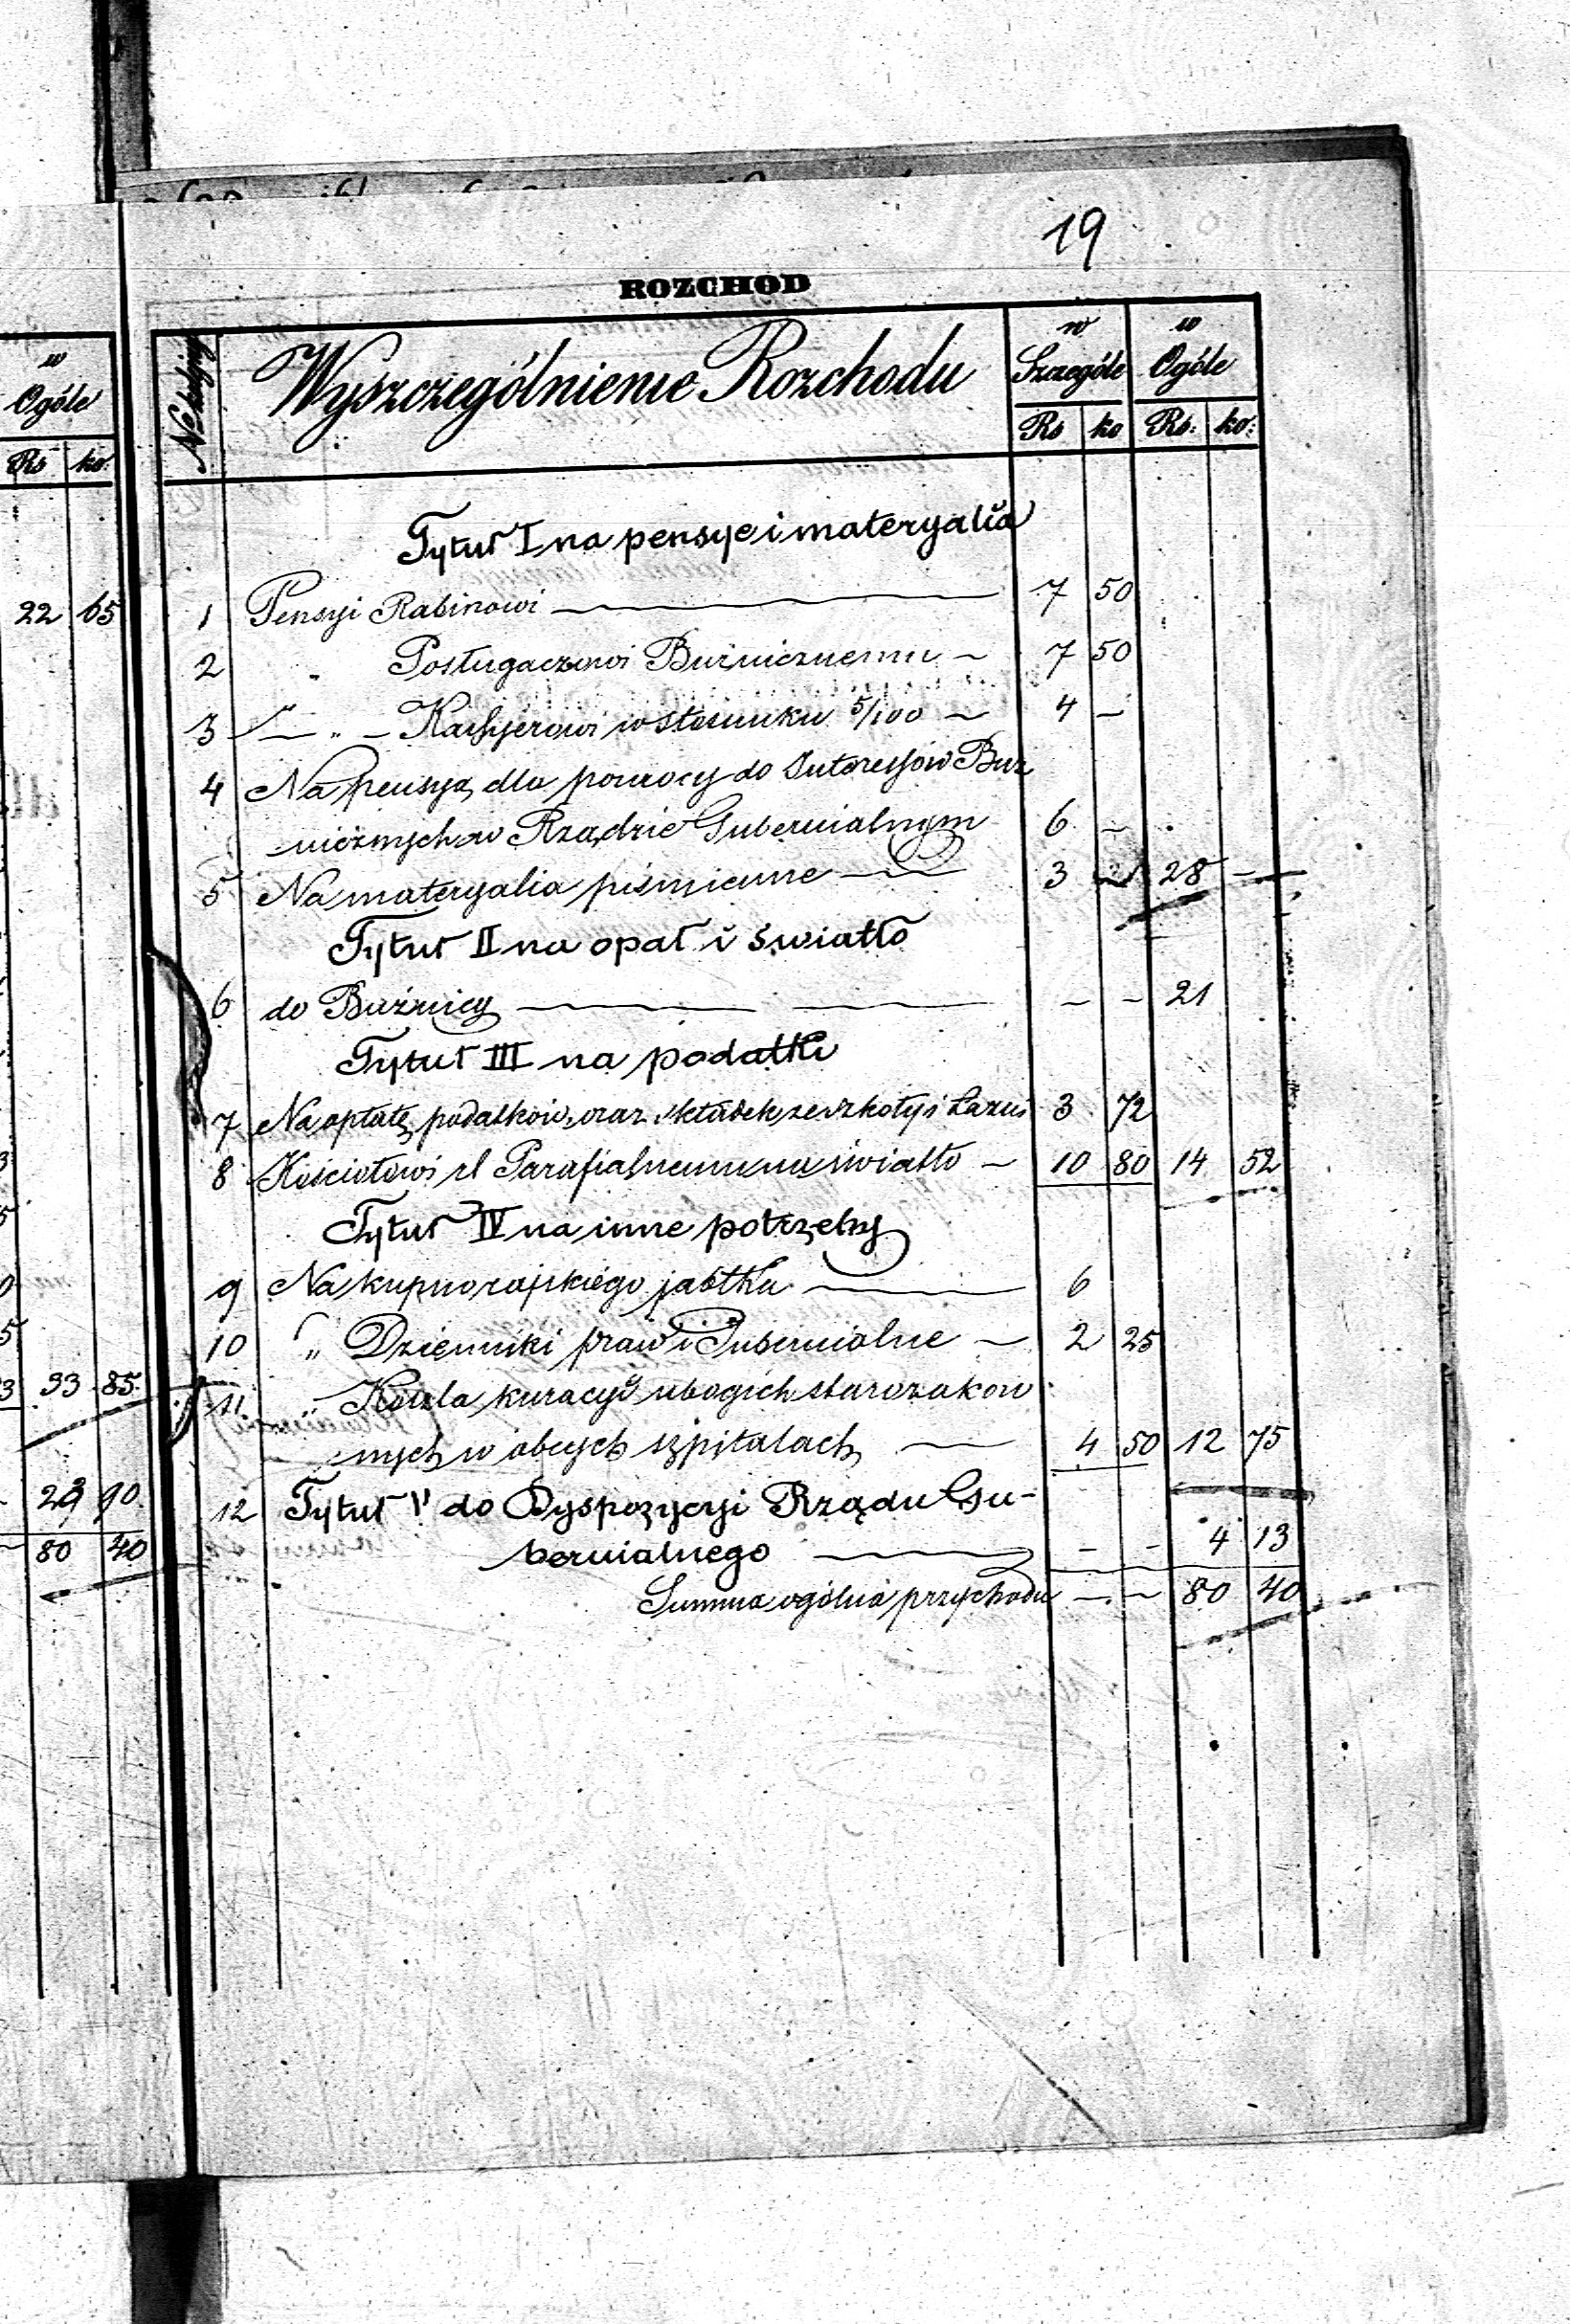 19
ROZCHOD
w Ogóle
Rs ko:
22 65
33 85
29 90
80 40
№ kolejny
Wyszczególnienie Rozchodu
w Szczególe
w Ogóle
Rs ko Rs: ko:
Tytuł I na pensye i materyalia
1 Pensyi Rabinowi 7 50
2 " Posługaczowi Buźnicznemu – 7 50
3 – " – Kassyerowi w stosunku 5/100 – 4 –
4 Na pensyą dla pomocy do Interessów Buz
nicznych w Rządzie Gubernialnym 6 –
5 Na materyalia piśmienne 3 – 28 –
Tytuł II na opał i światło
6 do Buźnicy – – 21
Tytuł III na podatki
7 Na opłatę podatków, oraz składek ze szkoły i Łazni 3 72
8 Kościołowi rl Parafialnemu na światło – 10 80 14 52
Tytuł IV na inne potrzeby
9 Na kupno rajskiego jabłka 6
10 " Dzienniki praw i Gubernialne – 2 25
11 " Koszta kuracyi ubogich starozakon
nych w obcych szpitalach 4 50 12 75
12 Tytuł V do Dyspozycyi Rządu Gu-
bernialnego – – 4 13
Summa ogólna przychodu – – 80 40